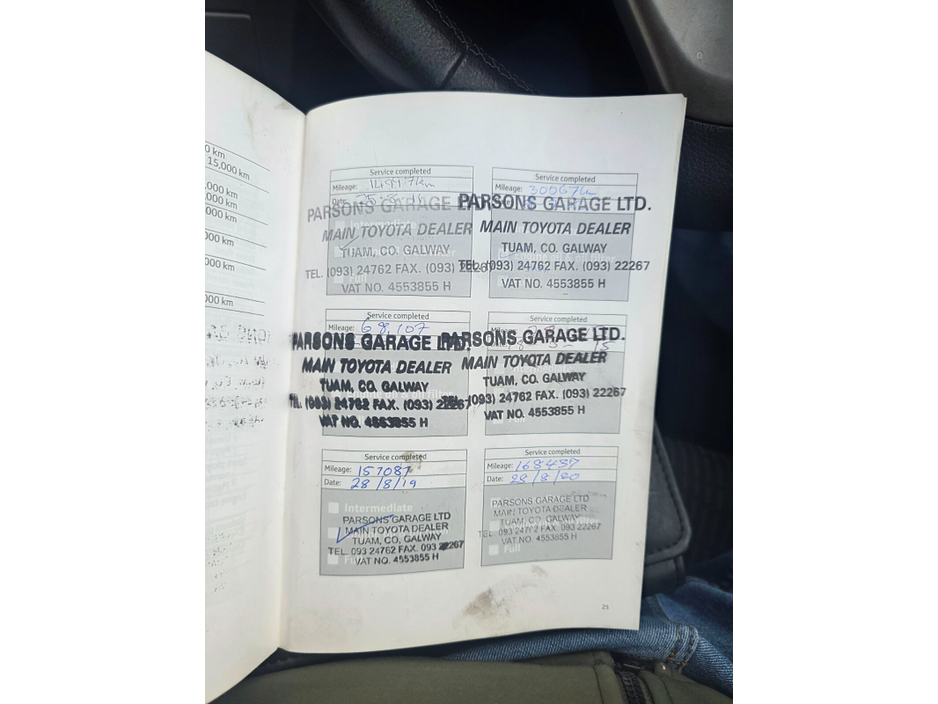 0 km
15,000 km
,000 km
,000 km
000 km
000 km
000 km
000 km
Service completed
Mileage:
Date:
PARSONS GARAGE
Intermediate
MAIN TOYOTA DEALER
TUAM, CO. GALWAY
TEL. (093) 24762 FAX. (093) 22267
VAT NO. 4553855 H
Service completed
Mileage:
PARSONS GARAGE LTD.
MAIN TOYOTA DEALER
TUAM, CO. GALWAY
TEL. (093) 24762 FAX. (093) 22267
VAT NO. 4553855 H
Service completed
Mileage: 68,107
PARSONS GARAGE LTD.
MAIN TOYOTA DEALER
TUAM, CO. GALWAY
TEL. (093) 24762 FAX. (093) 22267
VAT NO. 4553855 H
Service completed
Mileage:
PARSONS GARAGE LTD.
15
MAIN TOYOTA DEALER
TUAM, CO. GALWAY
TEL. (093) 24762 FAX. (093) 22267
VAT NO. 4553855 H
Full
Service completed
Mileage: 157087
Date: 28/8/19
Intermediate
PARSONS GARAGE LTD
MAIN TOYOTA DEALER
TUAM, CO. GALWAY
TEL. 093 24762 FAX. 093 22267
VAT NO. 4553855 H
Service completed
Mileage: 168437
Date: 28/8/20
PARSONS GARAGE LTD
MAIN TOYOTA DEALER
TUAM, CO. GALWAY
TEL. 093 24762 FAX. 093 22267
VAT NO. 4553855 H
Full
25